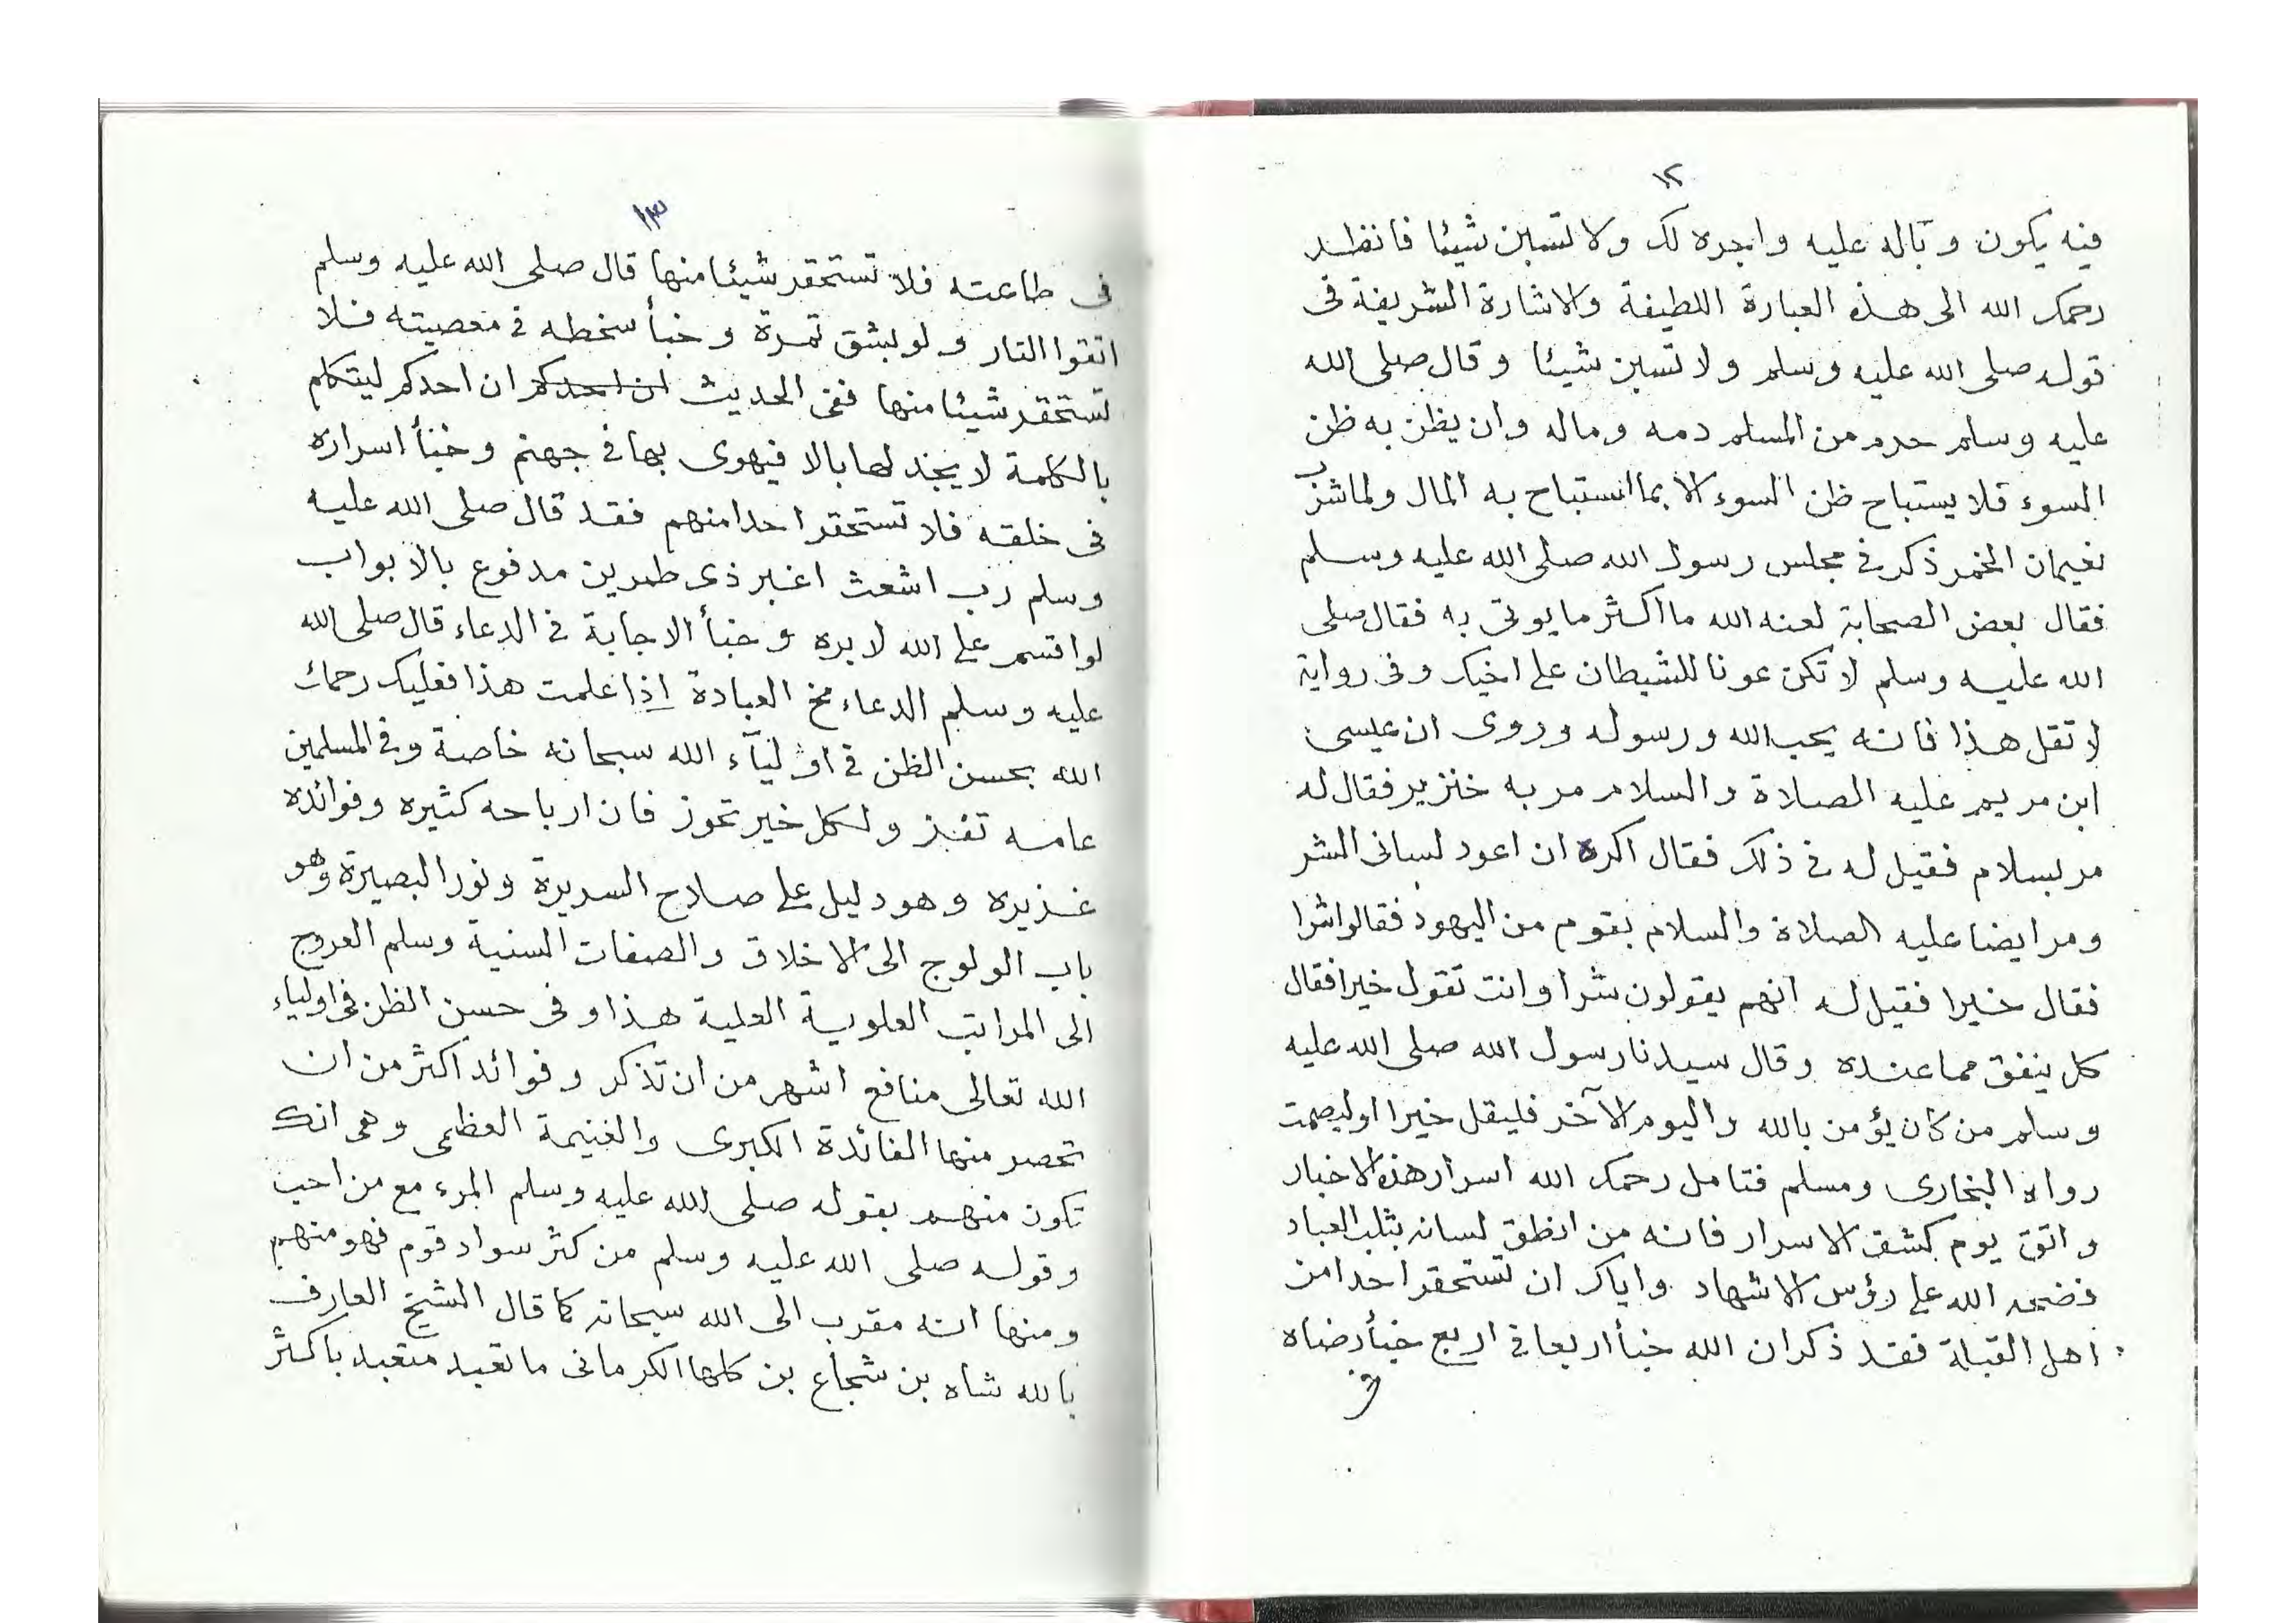 ١٢
فيه يكون وباله عليه واجره لك ولا تسبن شيئا فانظر
رحمك الله الى هذه العبارة اللطيفة والاشارة الشريفة فى
قوله صلى الله عليه وسلم ولا تسبن شيئا وقال صلى الله
عليه وسلم حرم من المسلم دمه وماله وان يظن به ظن
السوء فلا يستباح ظن السوء الا بما استباح به المال ولما شرب
نعيمان الخمر ذكر فى مجلس رسول الله صلى الله عليه وسلم
فقال بعض الصحابة لعنه الله ما اكثر ما يوتى به فقال صلى
الله عليه وسلم لا تكن عونا للشيطان على اخيك وفى رواية
لا تقل هذا فانه يحب الله ورسوله وروى ان عيسى
ابن مريم عليه الصلاة والسلام مر به خنزير فقال له
مر بسلام فقيل له فى ذلك فقال اكره ان اعود لسانى الشر
ومر ايضا عليه الصلاة والسلام بقوم من اليهود فقالوا شرا
فقال خيرا فقيل له انهم يقولون شرا وانت تقول خيرا فقال
كل ينفق مما عنده وقال سيدنا رسول الله صلى الله عليه
وسلم من كان يؤمن بالله واليوم الآخر فليقل خيرا او ليصمت
رواه البخارى ومسلم فتامل رحمك الله اسرار هذه الاخبار
واتق يوم كشف الاسرار فانه من انطق لسانه بثلب العباد
فضحه الله على رؤس الاشهاد واياك ان تستحقر احدا من
اهل القبلة فقد ذكر ان الله خبأ اربعا فى اربع خبأ رضاه
فى
١٣
فى طاعته فلا تستحقر شيئا منها قال صلى الله عليه وسلم
اتقوا النار ولو بشق تمرة وخبأ سخطه فى معصيته فلا
تستحقر شيئا منها ففى الحديث ان احدكم ان احدكم ليتكلم
بالكلمة لا يجد لها بالا فيهوى بها فى جهنم وخبأ اسراره
فى خلقه فلا تستحقر احدا منهم فقد قال صلى الله عليه
وسلم رب اشعث اغبر ذى طمرين مدفوع بالابواب
لو اقسم على الله لابره وخبأ الاجابة فى الدعاء قال صلى الله
عليه وسلم الدعاء مخ العبادة اذا علمت هذا فعليك رحمك
الله بحسن الظن فى اوليآء الله سبحانه خاصة وفى المسلمين
عامه تفز ولكل خير تحوز فان ارباحه كثيره وفوائده
غزيره وهو دليل على صلاح السريرة ونور البصيرة وهو
باب الولوج الى الاخلاق والصفات السنية وسلم العروج
الى المراتب العلوية العلية هذا وفى حسن الظن فى اولياء
الله تعالى منافع اشهر من ان تذكر وفوائد اكثر من ان
تحصر منها الفائدة الكبرى والغنيمة العظمى وهى انك
تكون منهم بقوله صلى الله عليه وسلم المرء مع من احب
وقوله صلى الله عليه وسلم من كثر سواد قوم فهو منهم
ومنها انه مقرب الى الله سبحانه كما قال الشيخ العارف
بالله شاه بن شجاع بن كلها الكرمانى ما تعبد متعبد باكثر